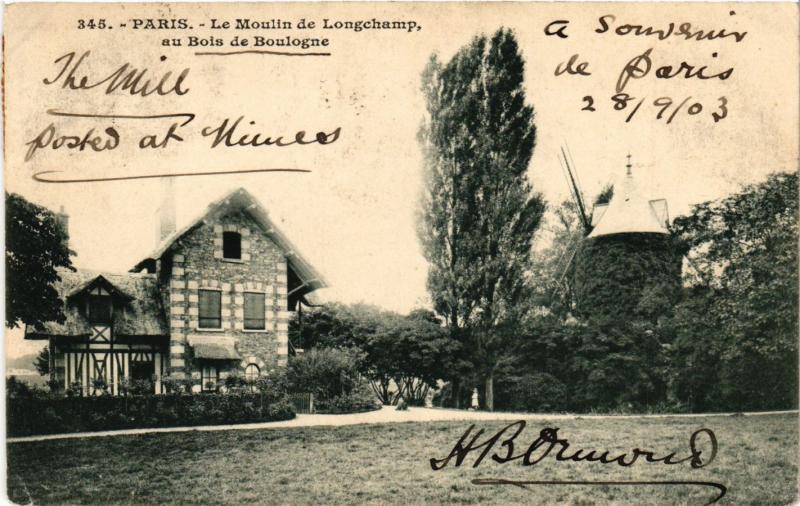 345. - PARIS. - Le Moulin de Longchamp,
au Bois de Boulogne
The Mill
posted at Nimes
a Souvenir
de Paris
28/9/03
HBOrmond